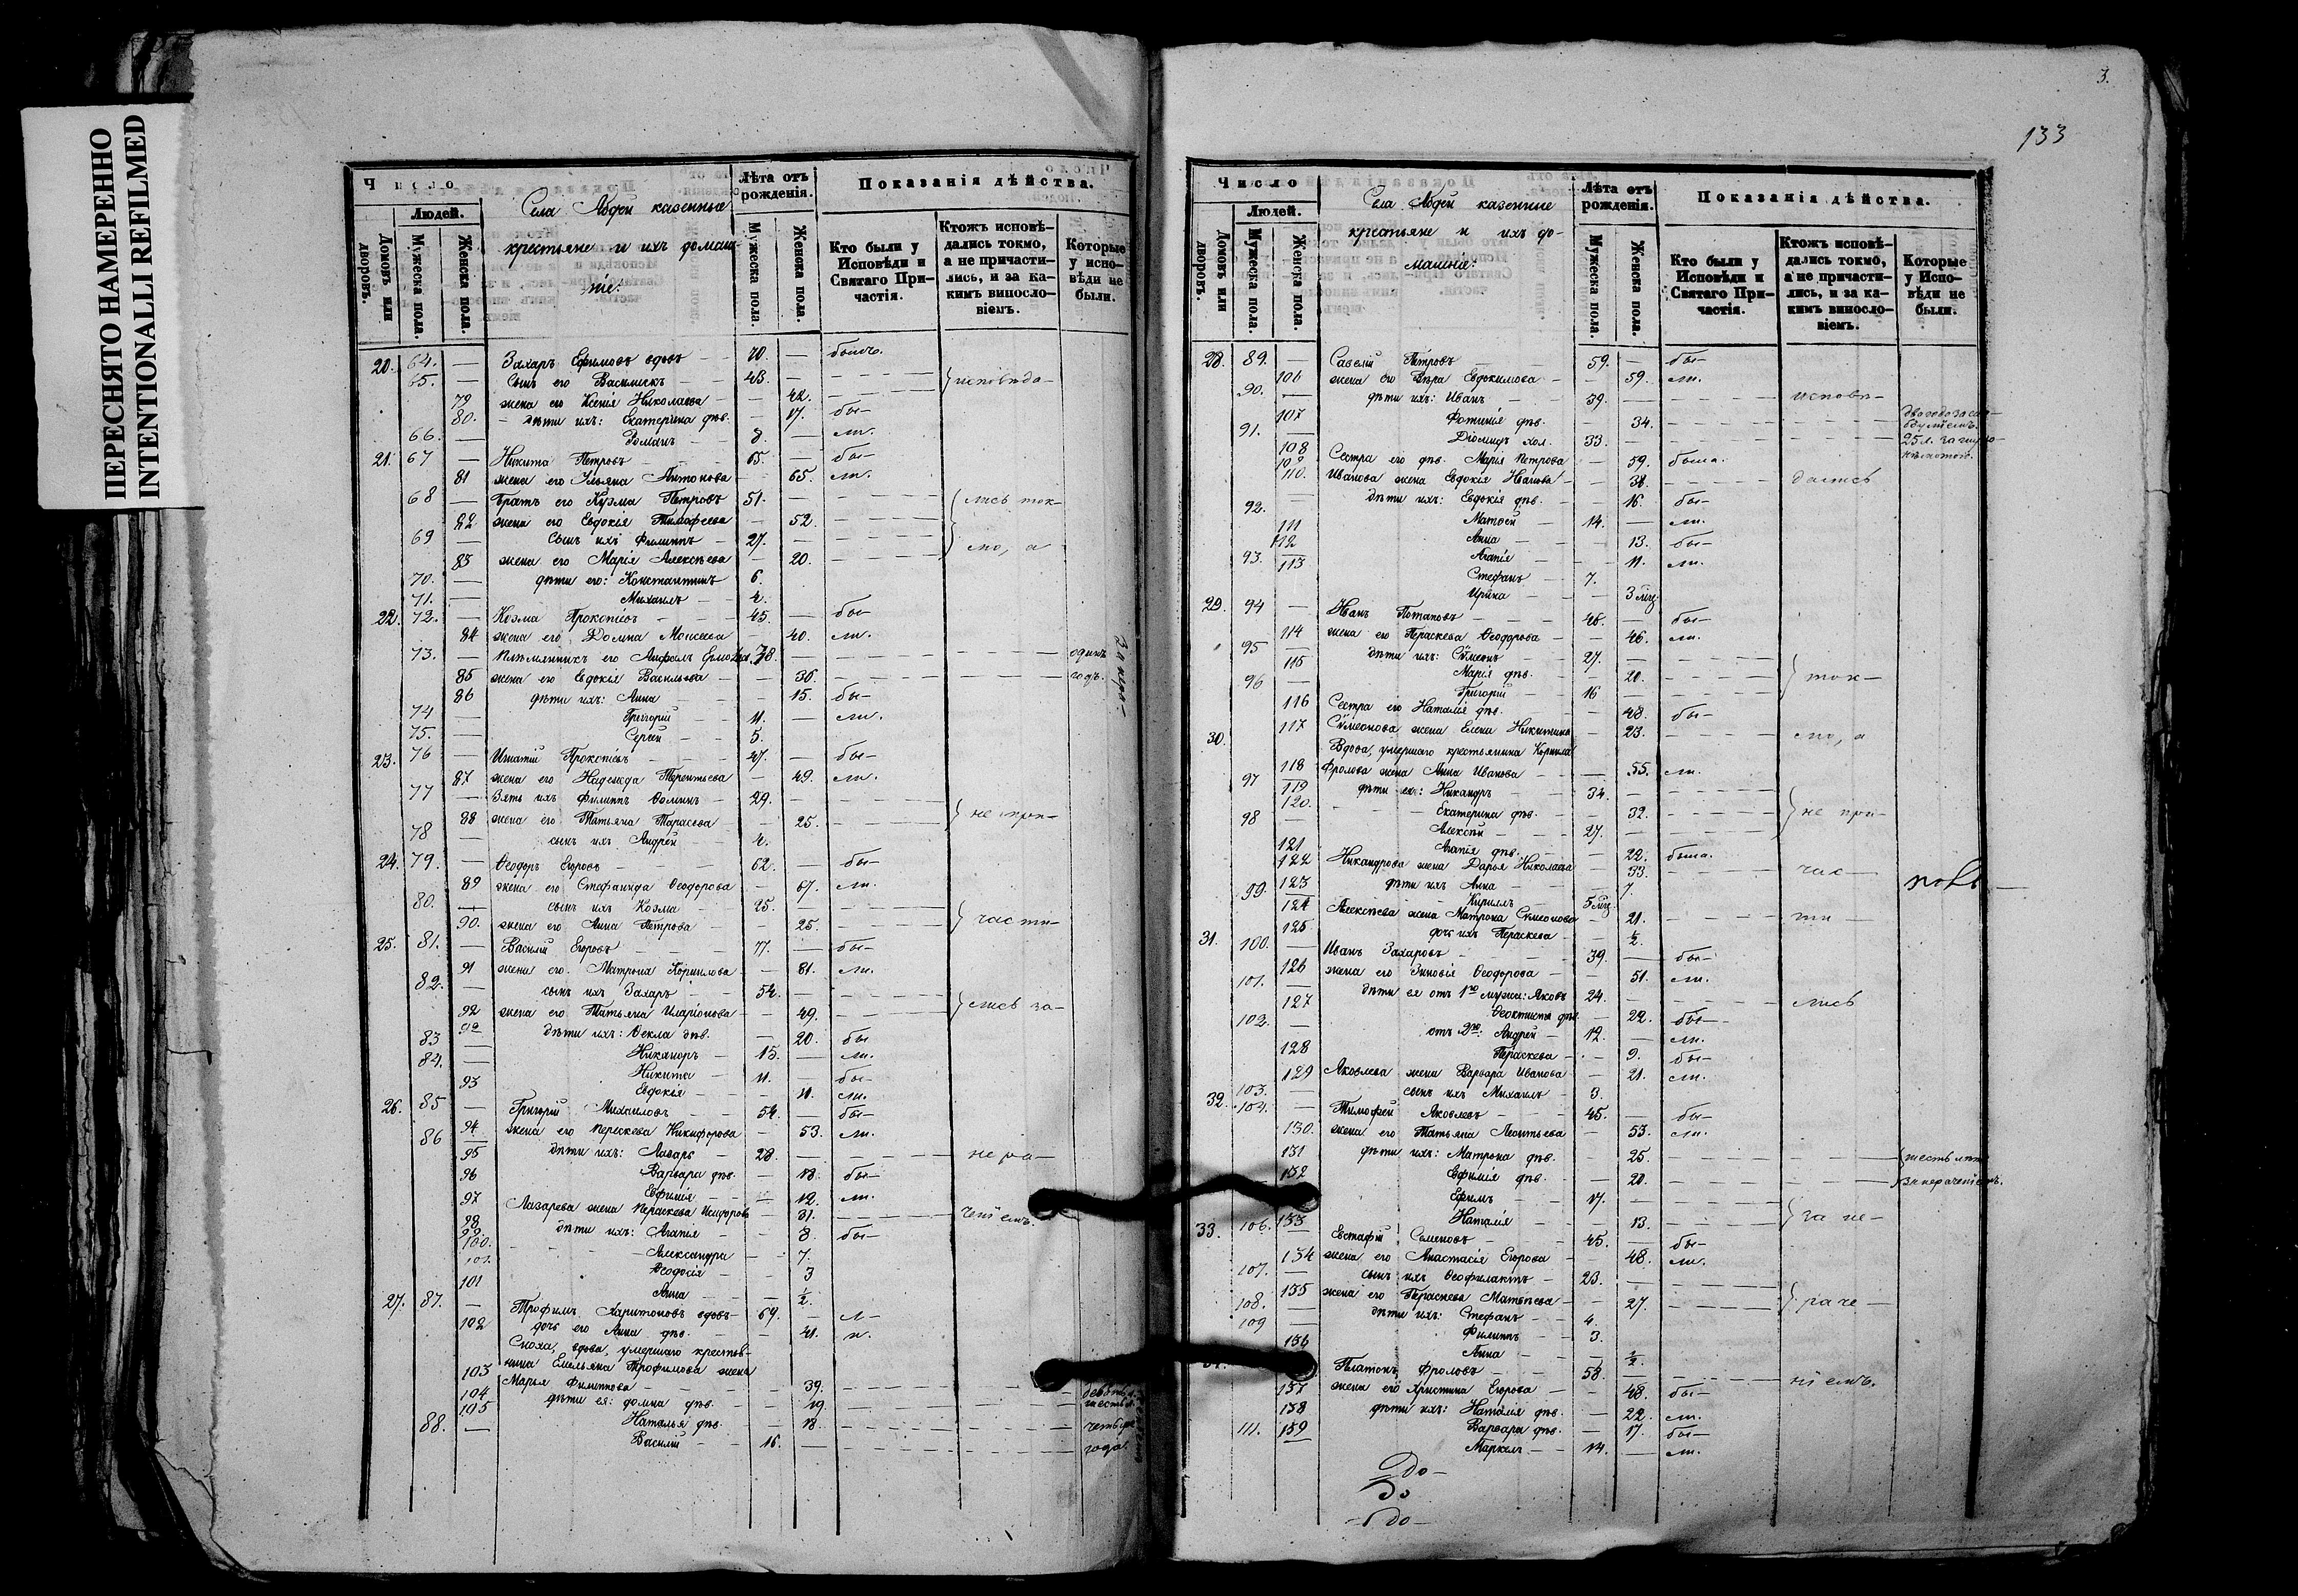 ПЕРЕСНЯТО НАМЕРЕННО
INTENTIONALLI REFILMED
Число
Людей.
Домовъ или дворовъ.
Мужеска пола.
Женска пола.
Села казенные
крестьяне и ихъ домаш-
ніе:
Лѣта отъ рожденія.
Мужеска пола.
Женска пола.
Показанія дѣйства.
Кто были у Исповѣди и Святаго Причастія.
Ктожъ исповѣдались токмо, а не причастились, и за какимъ винословіемъ.
Которые у исповѣди не были.
20. 64. — Захаръ Ефимовъ вдовъ — 70. — былъ.
65. — Сынъ его Василискъ — 43. — исповѣда-
79 жена его Ксенія Николаева — 42.
80. дѣти ихъ: Екатерина дѣв. 17. бы-
66. — Романъ — 8. — ли.
21. 67 — Никита Петровъ — 65. — бы-
81 жена его Ульяна Антонова — 65. ли.
68 — Братъ его Кузма Петровъ 51. — лись ток-
82 жена его Евдокія Тимофеева — 52.
69 — Сынъ ихъ Филиппъ — 27. — мо, а
83 жена его Марія Алексѣева — 20.
70. — дѣти его: Константинъ 6.
71. — Михаилъ — 2.
22. 72. — Козма Прокопіевъ — 45. — бы-
84 жена его Домна Моисеева — 40. ли.
73. — Племянникъ его 38. — одинъ
85 жена его Евдокія Васильева — 36. годъ.
86 дѣти ихъ: Анна — 15. бы-
74 — Григорій — 11. — ли.
75. — Сергій — 5.
23. 76 — Игнатій Прокопіевъ — 47. — бы-
87 жена его Надежда Терентьева — 49. ли.
77 — Зять ихъ Филиппъ Ѳоминъ — 29. —
88 жена его Татьяна Тарасова — 25. не при-
78 — сынъ ихъ Андрей — 2.
24. 79. — Ѳеодоръ Егоровъ — 62. — бы-
89 жена его Стефанида Ѳеодорова — 67. ли.
80. — сынъ ихъ Козма — 25. —
90. жена его Анна Петрова — 25. части-
25. 81. — Василій Егоровъ — 77. — бы-
91 жена его Матрона Корнилова — 81. ли.
82. — сынъ ихъ Захаръ — 54. —
92 жена его Татьяна Иларіонова — 49. лись за-
дѣти ихъ: Ѳекла дѣв. — 20. бы
83 — Никаноръ — 15. — ли.
84. — Никита — 11. — бы-
93 Евдокія — 11. ли.
26. 85 — Григорій Михаиловъ — 54. — бы-
94. жена его Пераскева Никифорова — 53. ли.
86 — дѣти ихъ: Лазарь — 28. — не ра-
95 Варвара дѣв. — 18. бы-
96 Евфимія — 12. ли.
97 Лазарева жена Пераскева Исидорова — 31. ченіемъ.
98 дѣти ихъ: Агапія — 8. бы-
99 Александра — 7.
100. Ѳеодосія — 3
101 Анна — ½.
27. 87. — Трофимъ Харитоновъ вдовъ — 69. —
102 дочь его Анна дѣв. — 41.
Сноха, вдова, умершаго крестья-
нина Емельяна Трофимова жена
103 Марья Филиппова — 39.
104 дѣти ея: Домна дѣв. — 19.
105 Наталья дѣв. — 18. четыре
88. — Василій — 16. — года.
3.
133
Число
Людей.
Домовъ или дворовъ.
Мужеска пола.
Женска пола.
Села казенные
крестьяне и ихъ до-
машніе:
Лѣта отъ рожденія.
Мужеска пола.
Женска пола.
Показанія дѣйства.
Кто были у Исповѣди и Святаго Причастія.
Ктожъ исповѣдались токмо, а не причастились, и за какимъ винословіемъ.
Которые у Исповѣди не были.
28. 89. — Савелій Петровъ 59. — бы-
106 жена его Вѣра Евдокимова — 59. ли.
90. — дѣти ихъ: Иванъ — 39. — исповѣ-
107 Фотинія дѣв. — 34.
91. — Діомидъ хол. 33. — 25 л.
108 Сестра его дѣв. Марія Петрова — 59. была.
109 Иванова жена Евдокія Иванова — 38. дались
110. дѣти ихъ: Евдокія дѣв. — 16. бы-
92. — Матвей — 14. — ли.
111 Анна — 13. бы-
112 Агапія — 11. ли.
93. — Стефанъ — 7.
113 Ирина — 3 мѣц.
29. 94 — Иванъ Потаповъ — 46. — бы-
114 жена его Пераскева Ѳеодорова — 46. ли.
95 — дѣти ихъ: Сѵмеонъ — 27. —
115 Марія дѣв. — 20. ток-
96 — Григорій — 16 —
116 Сестра его Наталія дѣв. — 48. бы-
117 Сѵмеонова жена Елена Никитина — 23. мо, а
30. Вдова, умершаго крестьянина Корнила
118 Фролова жена Анна Иванова — 55. ли.
97 — дѣти ея: Никандръ — 34. —
119 Екатерина дѣв. — 32. не при-
98 — Алексѣй — 27. —
121 Агапія дѣв. — 22. была.
122 Никандрова жена Дарья Николаева — 33. час-
123 дѣти ихъ Анна — 7.
99. — Кириллъ — 5 мѣц.
124 Алексѣева жена Матрона Сѵмеонова — 21. ти-
125 дочь ихъ Пераскева — ½.
31. 100. — Иванъ Захаровъ — 39. — бы-
126 жена его Зиновія Ѳеодорова — 51. ли.
101. — дѣти ея отъ 1го мужа: Яковъ 24. — лись
127 Ѳеоктиста дѣв. — 22. бы-
102. — отъ 2го: Андрей — 12. — ли.
128 Пераскева — 9. бы-
129 Яковлева жена Варвара Иванова — 21. ли.
103. — сынъ ихъ Михаилъ — 3.
32. 104. — Тимофей Яковлевъ — 45. — бы-
130. жена его Татьяна Леонтьева — 53. ли.
131 дѣти ихъ: Матрона дѣв. — 25. шесть лѣтъ
132 Евфимія дѣв. — 20. за нерачені́емъ.
Ефимъ — 17. —
133 Наталія — 13. за не-
33. 106. — Евстафій Семеновъ — 45. — бы-
134 жена его Анастасія Егорова — 48. ли.
107. — сынъ ихъ Ѳеофилактъ — 23. —
135 жена его Пераскева Матвѣева — 27. раче-
108. — дѣти ихъ: Стефанъ — 4.
109 — Филиппъ — 3.
136 Анна — ½.
Платонъ Фроловъ — 58. — ніемъ.
137 жена его Христина Егорова — 48. бы-
138 дѣти ихъ: Наталія дѣв. — 22. ли.
139 Варвара дѣв. — 17. бы-
111. — Маркелъ — 14. — ли.